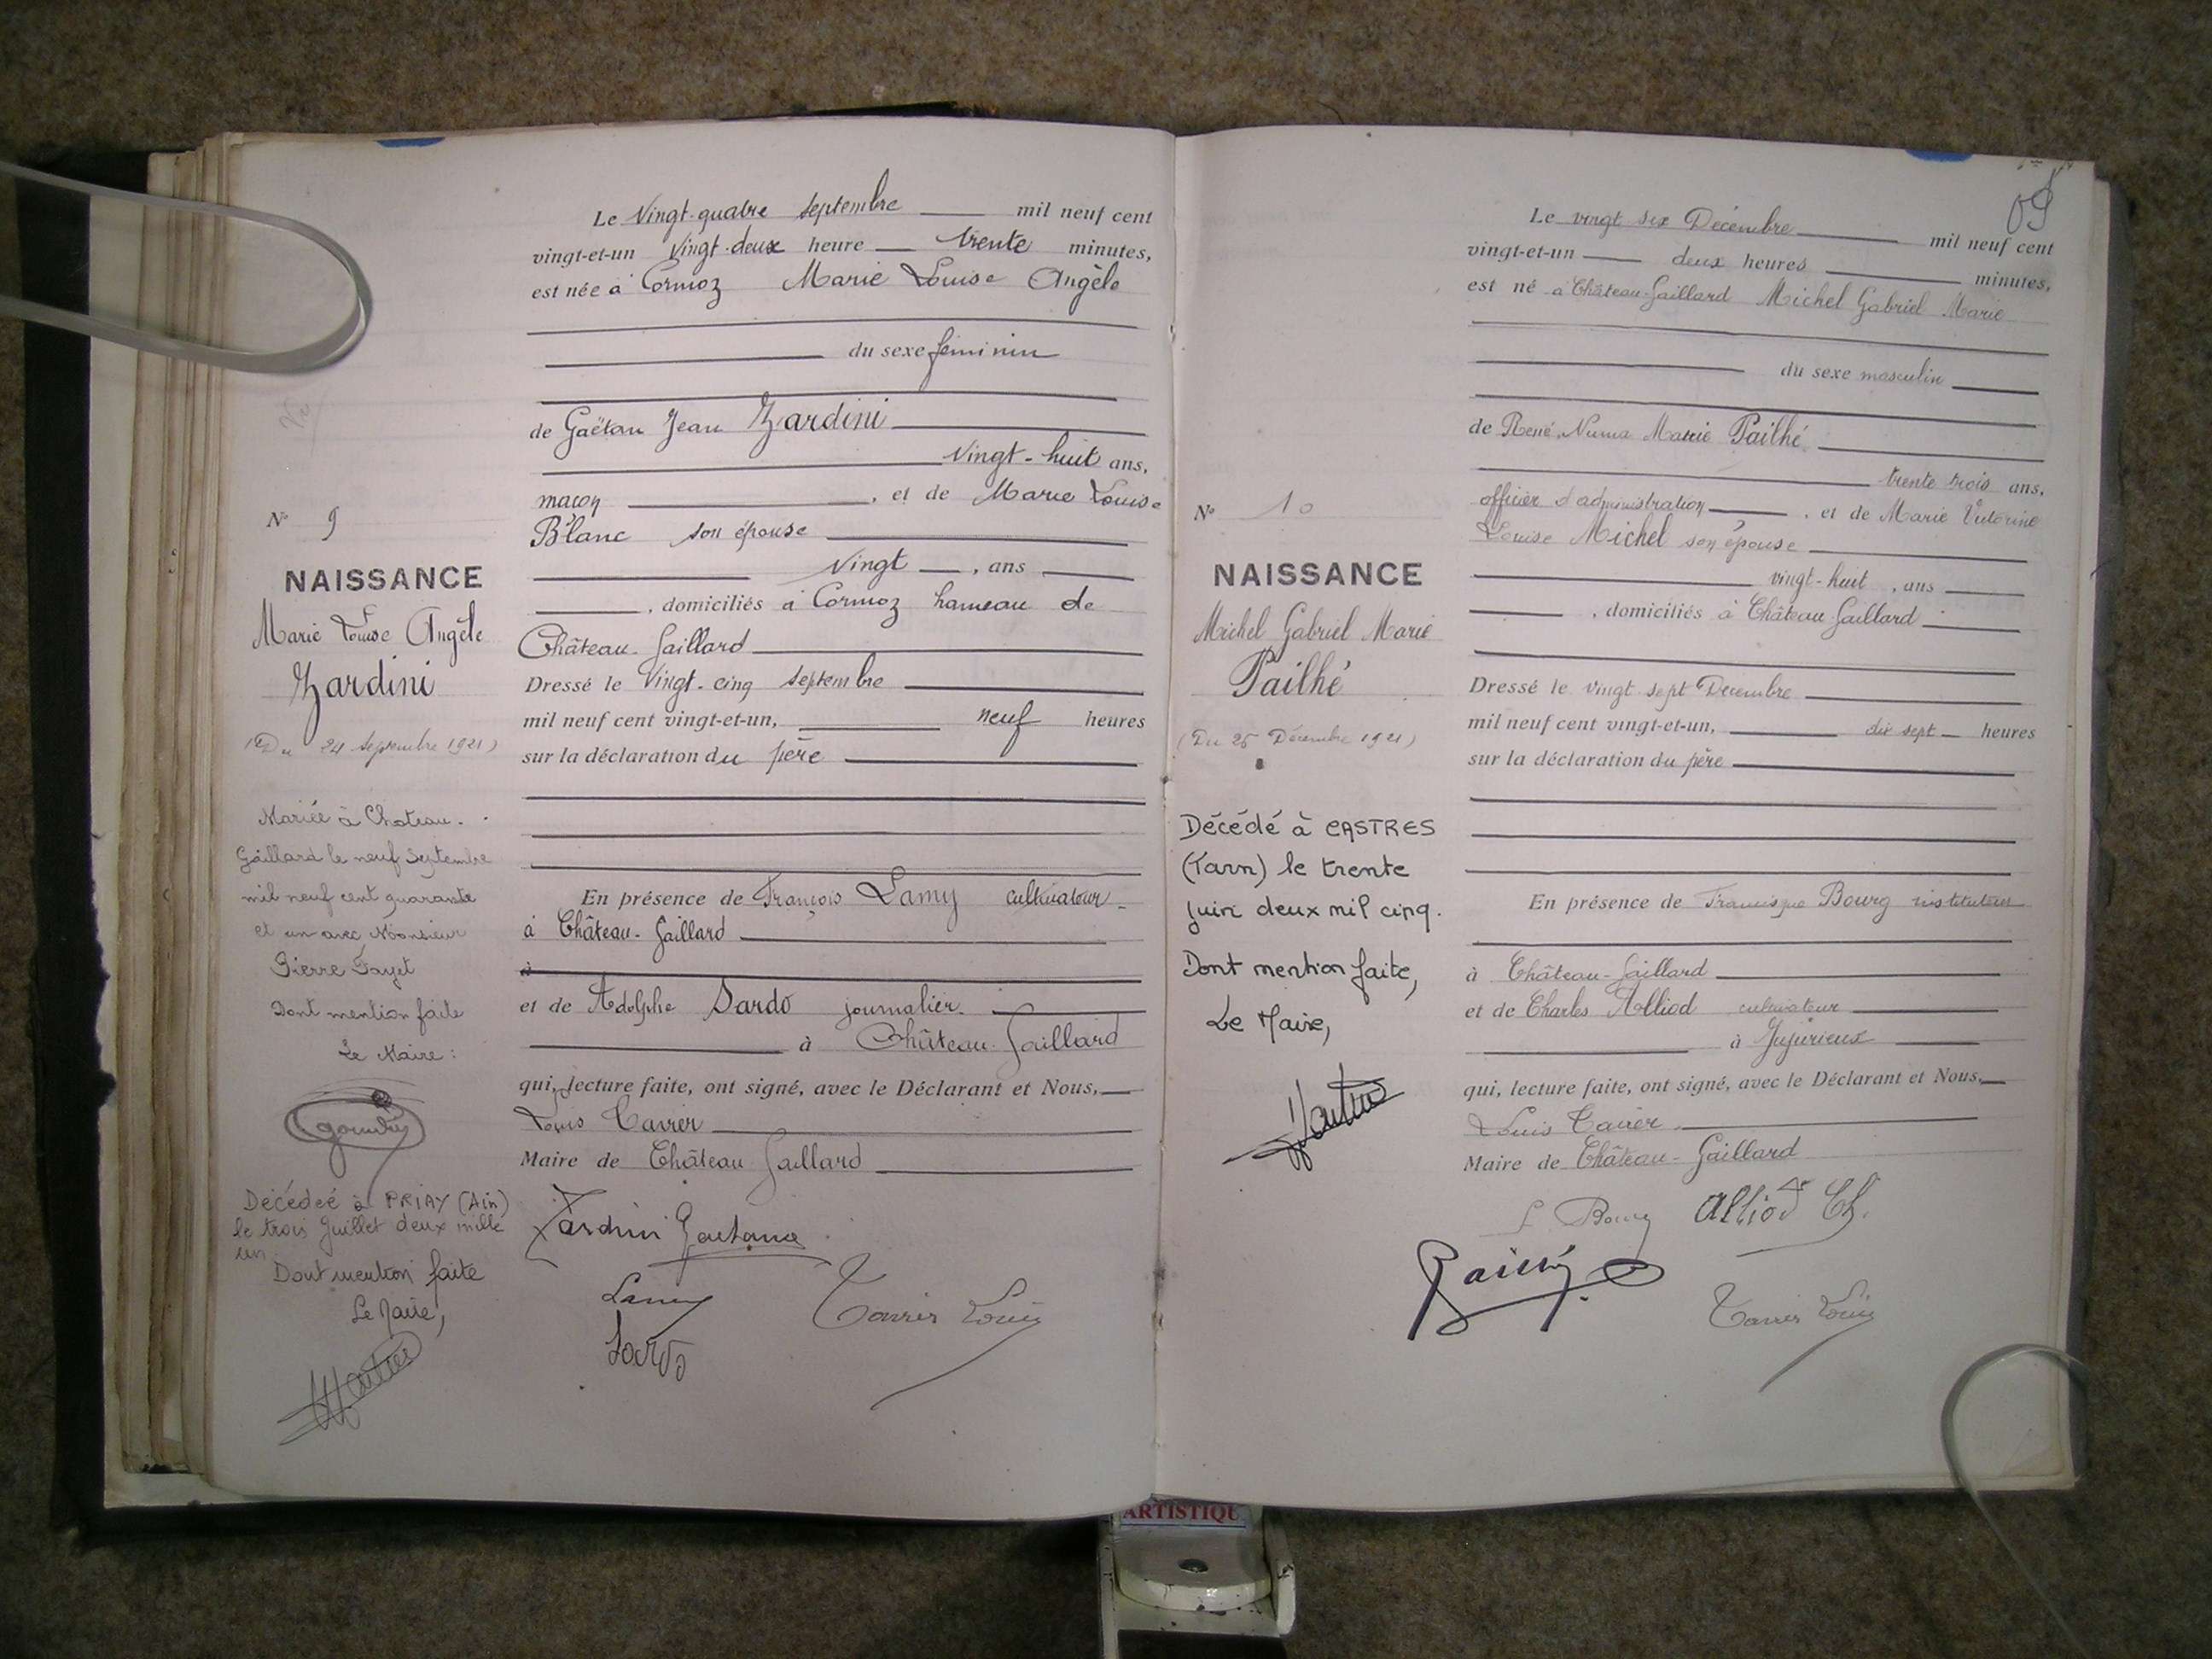 Le Vingt-quatre septembre mil neuf cent
vingt-et-un vingt-deux heure trente minutes,
est née à Cormoz Marie Louise Angèle
du sexe féminin
de Gaëtan Jean Zardini
Vingt-huit ans,
maçon , et de Marie Louise
Blanc son épouse
Vingt , ans
, domiciliés à Cormoz hameau de
Château-Gaillard
Dressé le Vingt-cinq septembre
mil neuf cent vingt-et-un, neuf heures
sur la déclaration du père
En présence de François Lamy cultivateur
à Château-Gaillard
à
et de Adolphe Sardo journalier
à Château-Gaillard
qui, lecture faite, ont signé, avec le Déclarant et Nous,
Louis Tavier
Maire de Château Gaillard
Zardini Gaetano
Lamy
Sardo
Tavier Louis
N° 9
NAISSANCE
Marie Louise Angèle
Zardini
(Du 24 Septembre 1921)
Mariée à Chateau-
Gaillard le neuf Septembre
mil neuf cent quarante
et un avec Monsieur
Pierre Fayet
Dont mention faite
Le Maire :
Décédée à PRIAY (Ain)
le trois Juillet deux mille
un
Dont mention faite
Le Maire,
Le vingt six Décembre mil neuf cent
vingt-et-un deux heures minutes,
est né à Château-Gaillard Michel Gabriel Marie
du sexe masculin
de René Numa Marie Pailhé
trente trois ans,
officier d'administration , et de Marie Victorine
Louise Michel son épouse
vingt-huit , ans
, domiciliés à Château-Gaillard
Dressé le vingt sept Décembre
mil neuf cent vingt-et-un, dix sept heures
sur la déclaration du père
En présence de Francisque Bourg instituteur
à Château-Gaillard
et de Charles Alliod cultivateur
à Jujurieux
qui, lecture faite, ont signé, avec le Déclarant et Nous,
Louis Tavier
Maire de Château-Gaillard
F. Bourg Alliod Ch.
Tavier Louis
N° 10
NAISSANCE
Michel Gabriel Marie
Pailhé
(Du 26 Décembre 1921)
Décédé à CASTRES
(Tarn) le trente
juin deux mil cinq.
Dont mention faite,
Le Maire,
ARTISTIQU